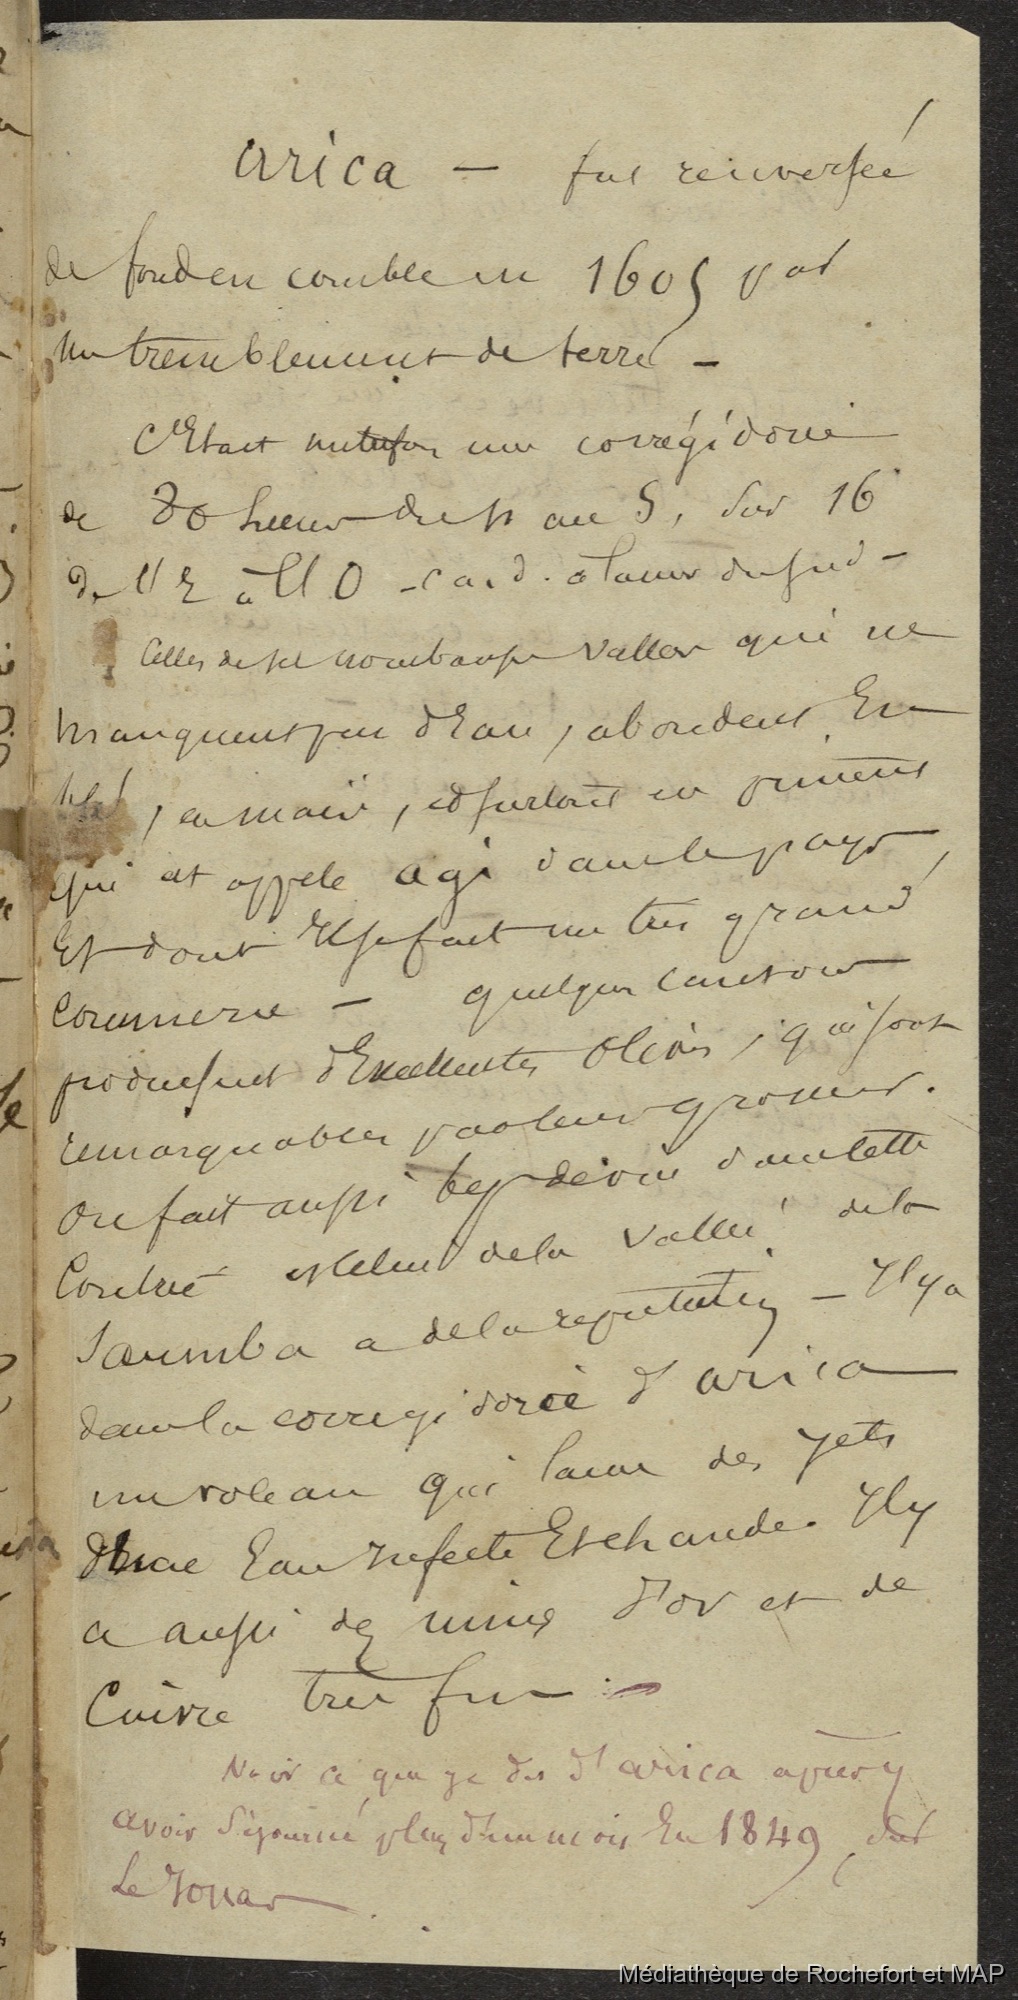 arica — fut renversée
de fond en comble en 1605 par
un tremblement de terre —
C'Etait une corrégidorie
de 80 lieues du N au S, sur 16
de l'E à l'O - c a d. a l'amer du sud —
Celles de ses nombreuses vallees qui ne
manquent pas d'Eau, abondent En
blé, en maïs, et surtout en piments
qui est appele agi dans le pays,
Et dont Il se fait un tres grand
commerce — quelques cantons
produisent d'Excellentes olives, qui sont
remarquables par leur grosseur.
on fait aussi du vin dans cette
Contrée et celui de la Vallée de la
Sacumba a de la reputation — Il y a
dans la corregidorie d'arica
un volcan qui lance des jets
d'une Eau Infecte Et chaude. Il y
a aussi des mines d'or et de
Cuivre tres fin —
Voir ce que je dis d'arica après y
avoir séjourné plus d'un mois En 1849, sur
Le
Médiathèque de Rochefort et MAP